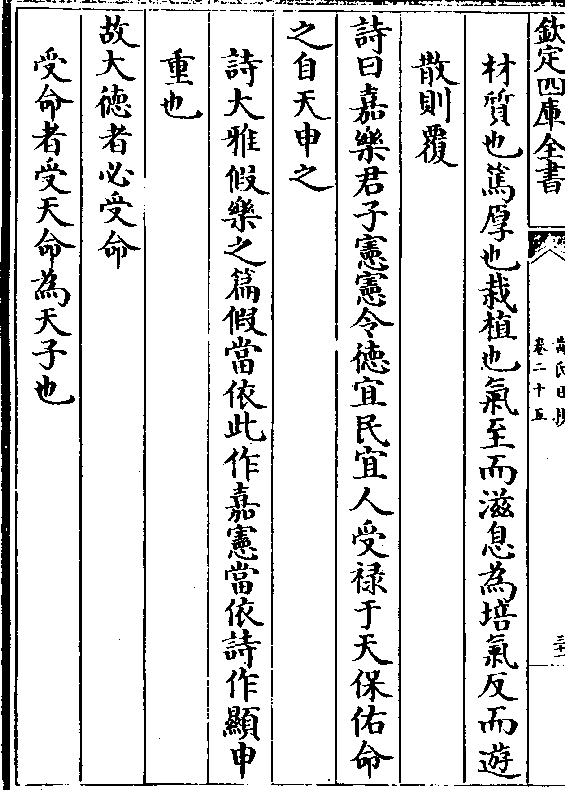 欽定四庫全書
黄氏日抄
卷二十五
材質也篤厚也栽植也氣至而滋息為培氣反而遊
散則覆
詩曰嘉樂君子憲憲令德宜民宜人受禄于天保佑命
之自天申之
詩大雅假樂之篇假當依此作嘉憲當依詩作顯申
重也
故大德者必受命
受命者受天命為天子也